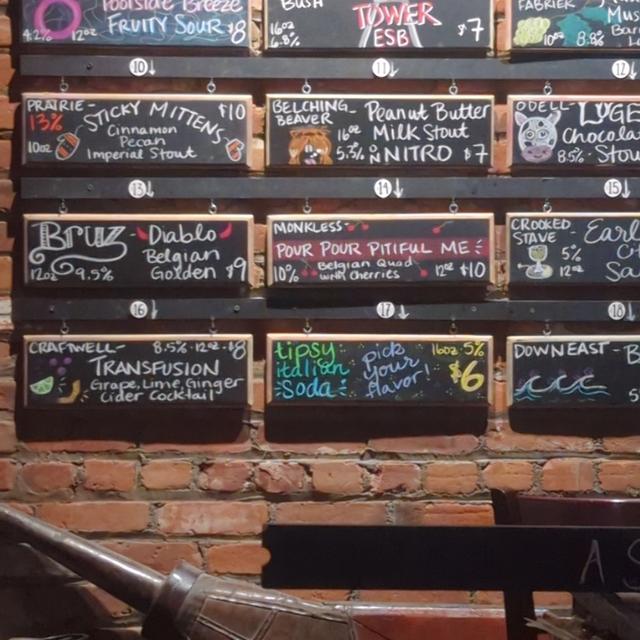 Poolside Breeze
FRUITY SOUR
4.2% 12oz $8
BUSH
TOWER
ESB
16oz
6.8% $7
FABRIEK
10oz 8.8%
10
11
12
PRAIRIE- $10
13% STICKY MITTENS
Cinnamon
Pecan
10oz Imperial Stout
BELCHING BEAVER- Peanut Butter
16oz Milk Stout
5.7% ON NITRO $7
ODELL- LUGE
Chocola
8.5% Stou
13
14
15
BRUZ- Diablo
Belgian
12oz 9.5% Golden $9
MONKLESS-
POUR POUR PITIFUL ME
10% Belgian Quad with Cherries 12oz $10
CROOKED STAVE
Earl
5%
12oz
Sa
16
17
18
CRAFTWELL- 8.5% · 12oz · $8
TRANSFUSION
Grape, Lime, Ginger
Cider Cocktail
tipsy italian Soda
pick your flavor!
16oz · 5%
$6
DOWNEAST- B
5
A S